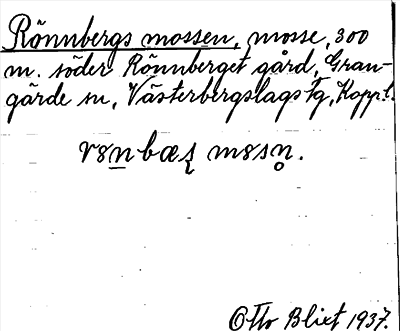 Rönnbergs mossen, mosse, 300
m. söder Rönnberget gård, Gran-
gärde sn, Västerbergslags fg, Koppb.
rɞn̲bæʂ mɞsn̥.
Otto Blixt 1937.